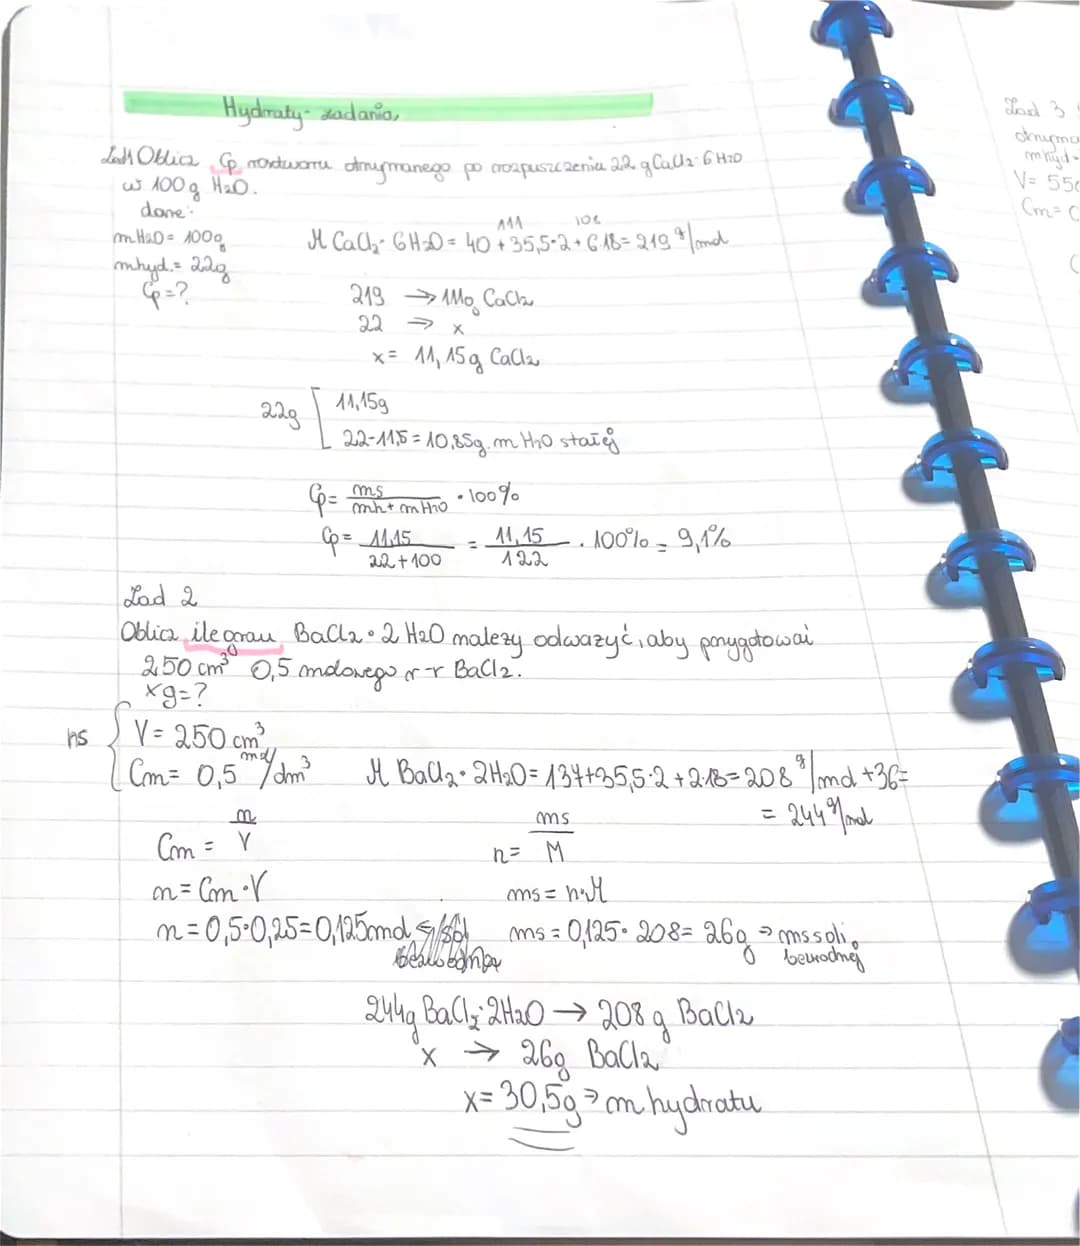 Hydraty- zadania
Zad1 Oblicz Cp roztworu otrzymanego po rozpuszczeniu 22 g CaCl2·6H2O
w 100g H2O.
dane:
mH2O= 100g
mhyd.= 22g
Cp=?
111 108
M CaCl2·6H2O= 40+35,5·2+6·18= 219 g/mol
219 → 111g CaCl2
22 → x
x= 11,15g CaCl2
22g
11,15g
22-11,5=10,85g m H2O stałej
Cp= ms/mh+mH2O ·100%
Cp= 11,15/22+100 = 11,15/122 · 100% = 9,1%
Zad 2
Oblicz ile gram BaCl2·2H2O należy odważyć, aby przygotować
250 cm³ 0,5 molowego r-r BaCl2.
xg=?
V= 250 cm³
Cm= 0,5 mol/dm³
M BaCl2·2H2O=137+35,5·2+2·18=208 g/mol +36=
= 244 g/mol
Cm = n/V
n= ms/M
n= Cm·V
ms= n·M
n=0,5·0,25=0,125mol
ms=0,125·208= 26g → ms soli
bezwodnej
244g BaCl2·2H2O → 208 g BaCl2
x → 26g BaCl2
x= 30,5g → m hydratu
Zad 3
mhyd-
V= 550
Cm=